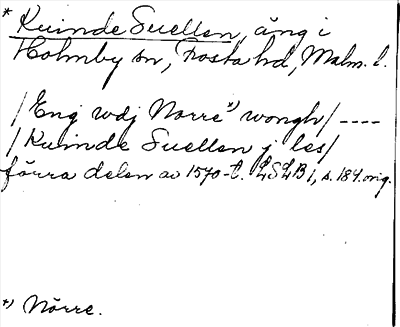 * Kuinde Suellen, äng i
Holmby sn, Frosta hd, Malm. l.
/Eng wdj Norre *) wongh/ ----
/Kuinde Suellen j les/
förra delen av 1570-t. LSLB 1, s. 184. orig.
*) Nörre.